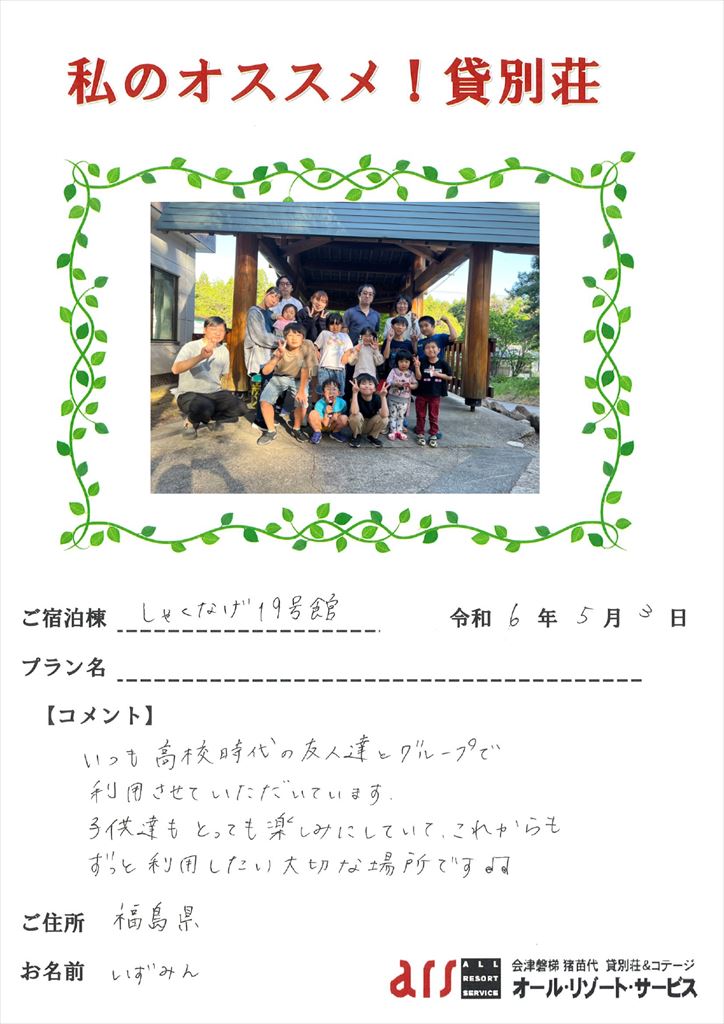 私のオススメ！貸別荘
ご宿泊棟 しゃくなげ19号館 令和 6 年 5 月 3 日
プラン名
【コメント】
いつも高校時代の友人達とグループで
利用させていただいています.
子供達もとっても楽しみにしていて、これからも
ずっと利用したい大切な場所です♫
ご住所 福島県
お名前 いずみん
ars ALL RESORT SERVICE 会津磐梯 猪苗代 貸別荘&コテージ
オール・リゾート・サービス